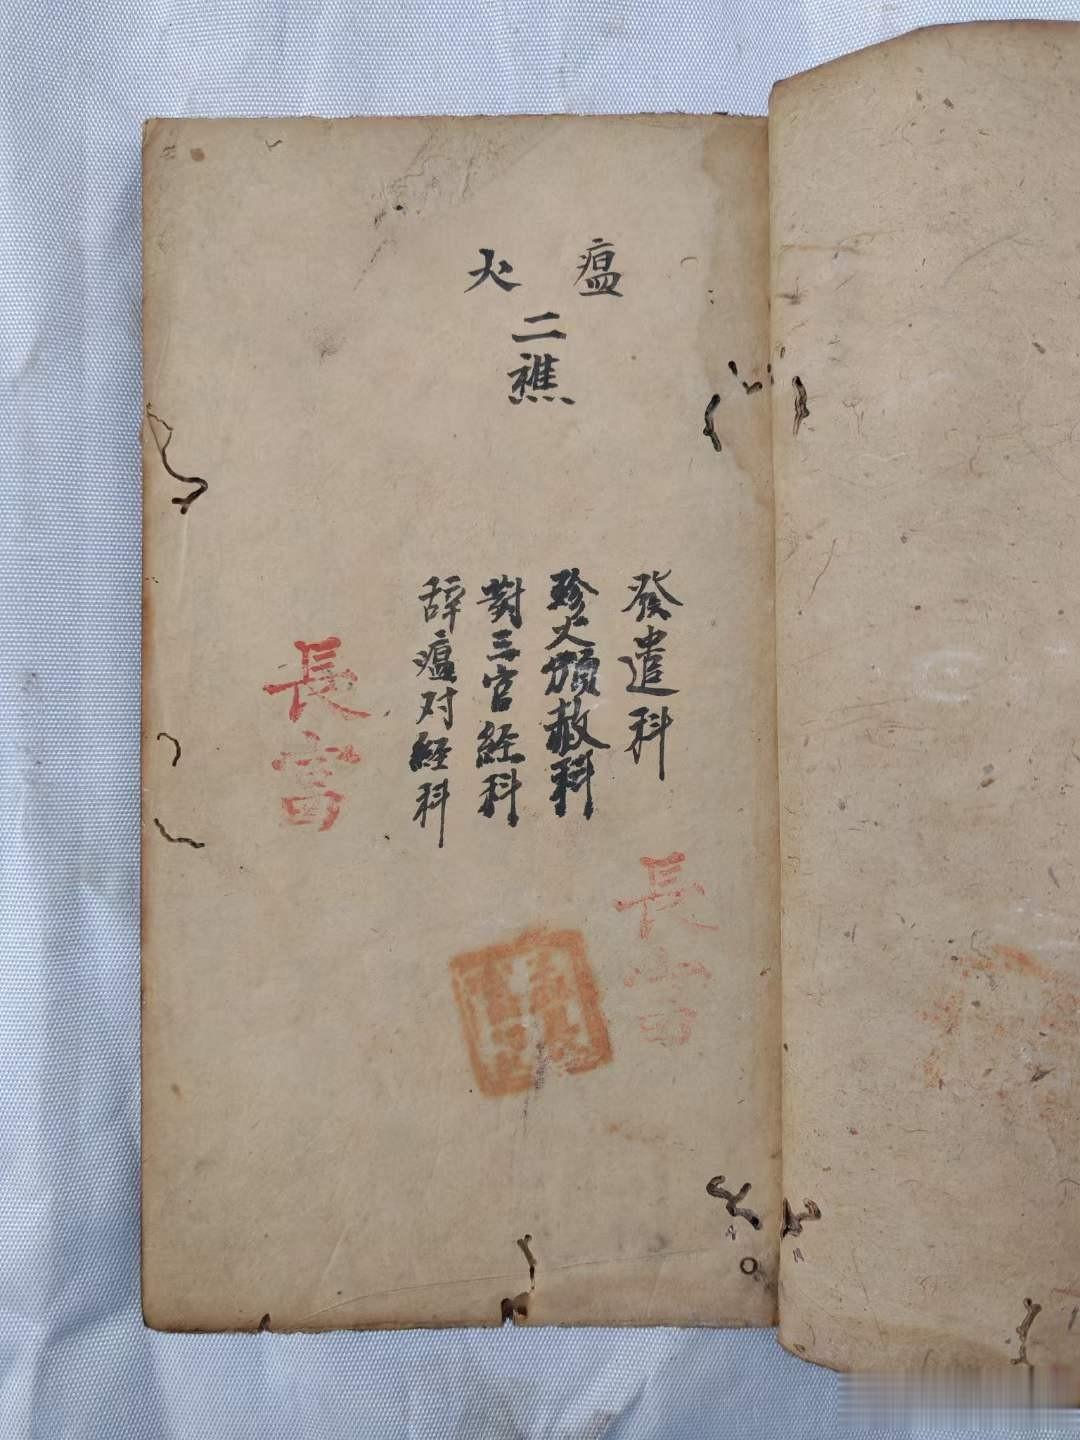 瘟火
二
發遣科
殄火頒赦科
對三官経科
辞瘟对経科
長富
長富